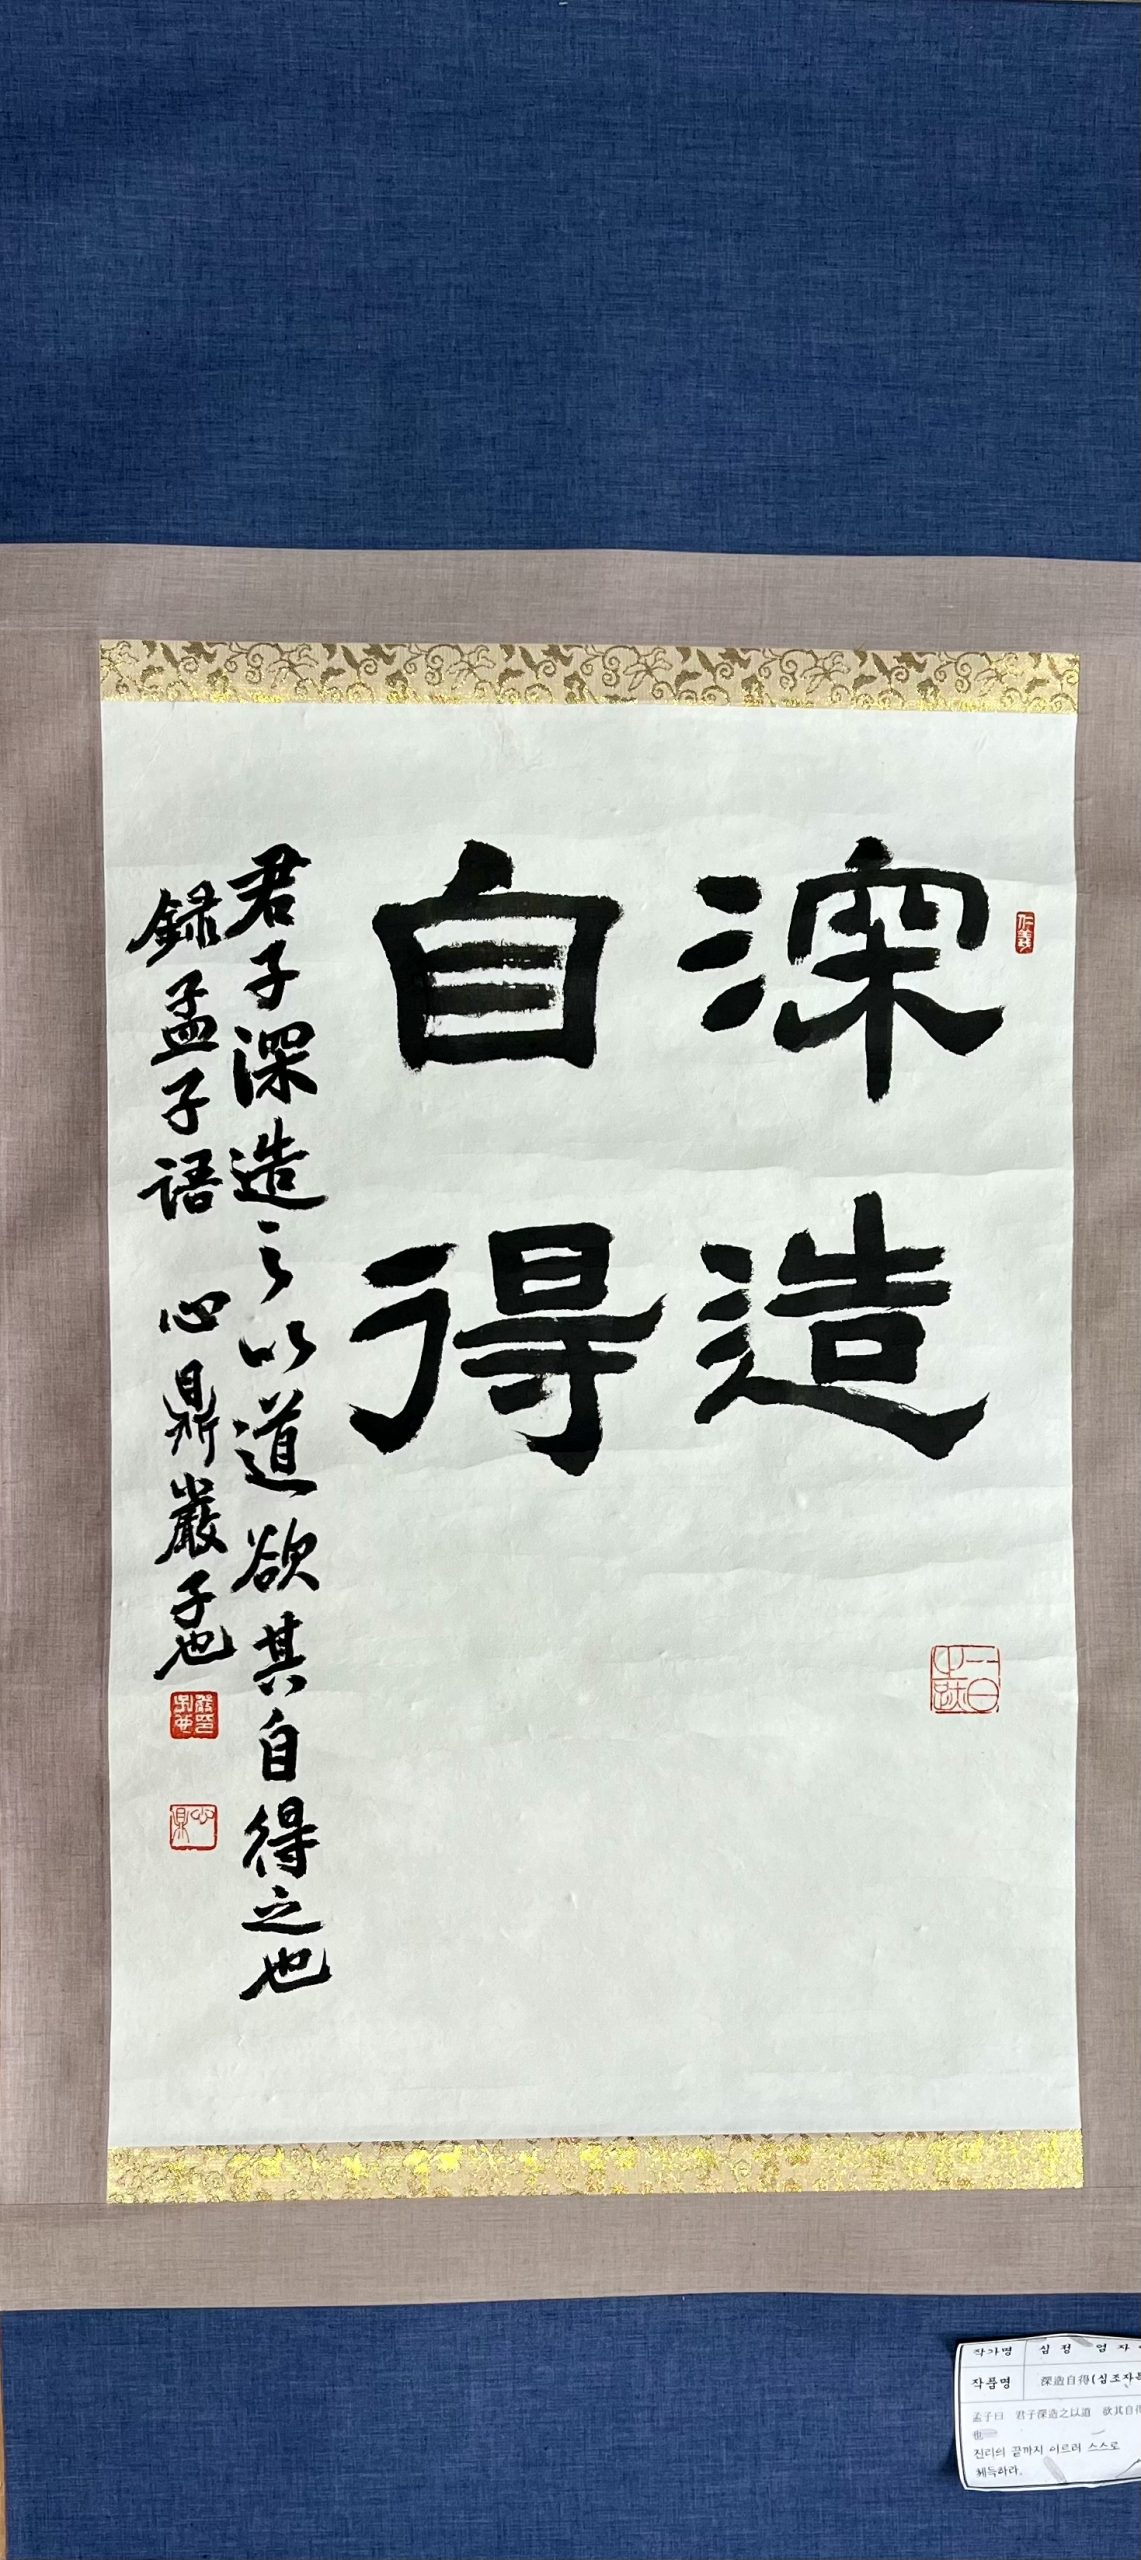 深造
自得
君子深造之以道欲其自得之也
録孟子語 心鼎嚴子也
一日
心鼎
작가명 심정 엄자
작품명 深造自得(심조자득
孟子曰 君子深造之以道 欲其自得
也
진리의 끝까지 이르러 스스로
체득하라.